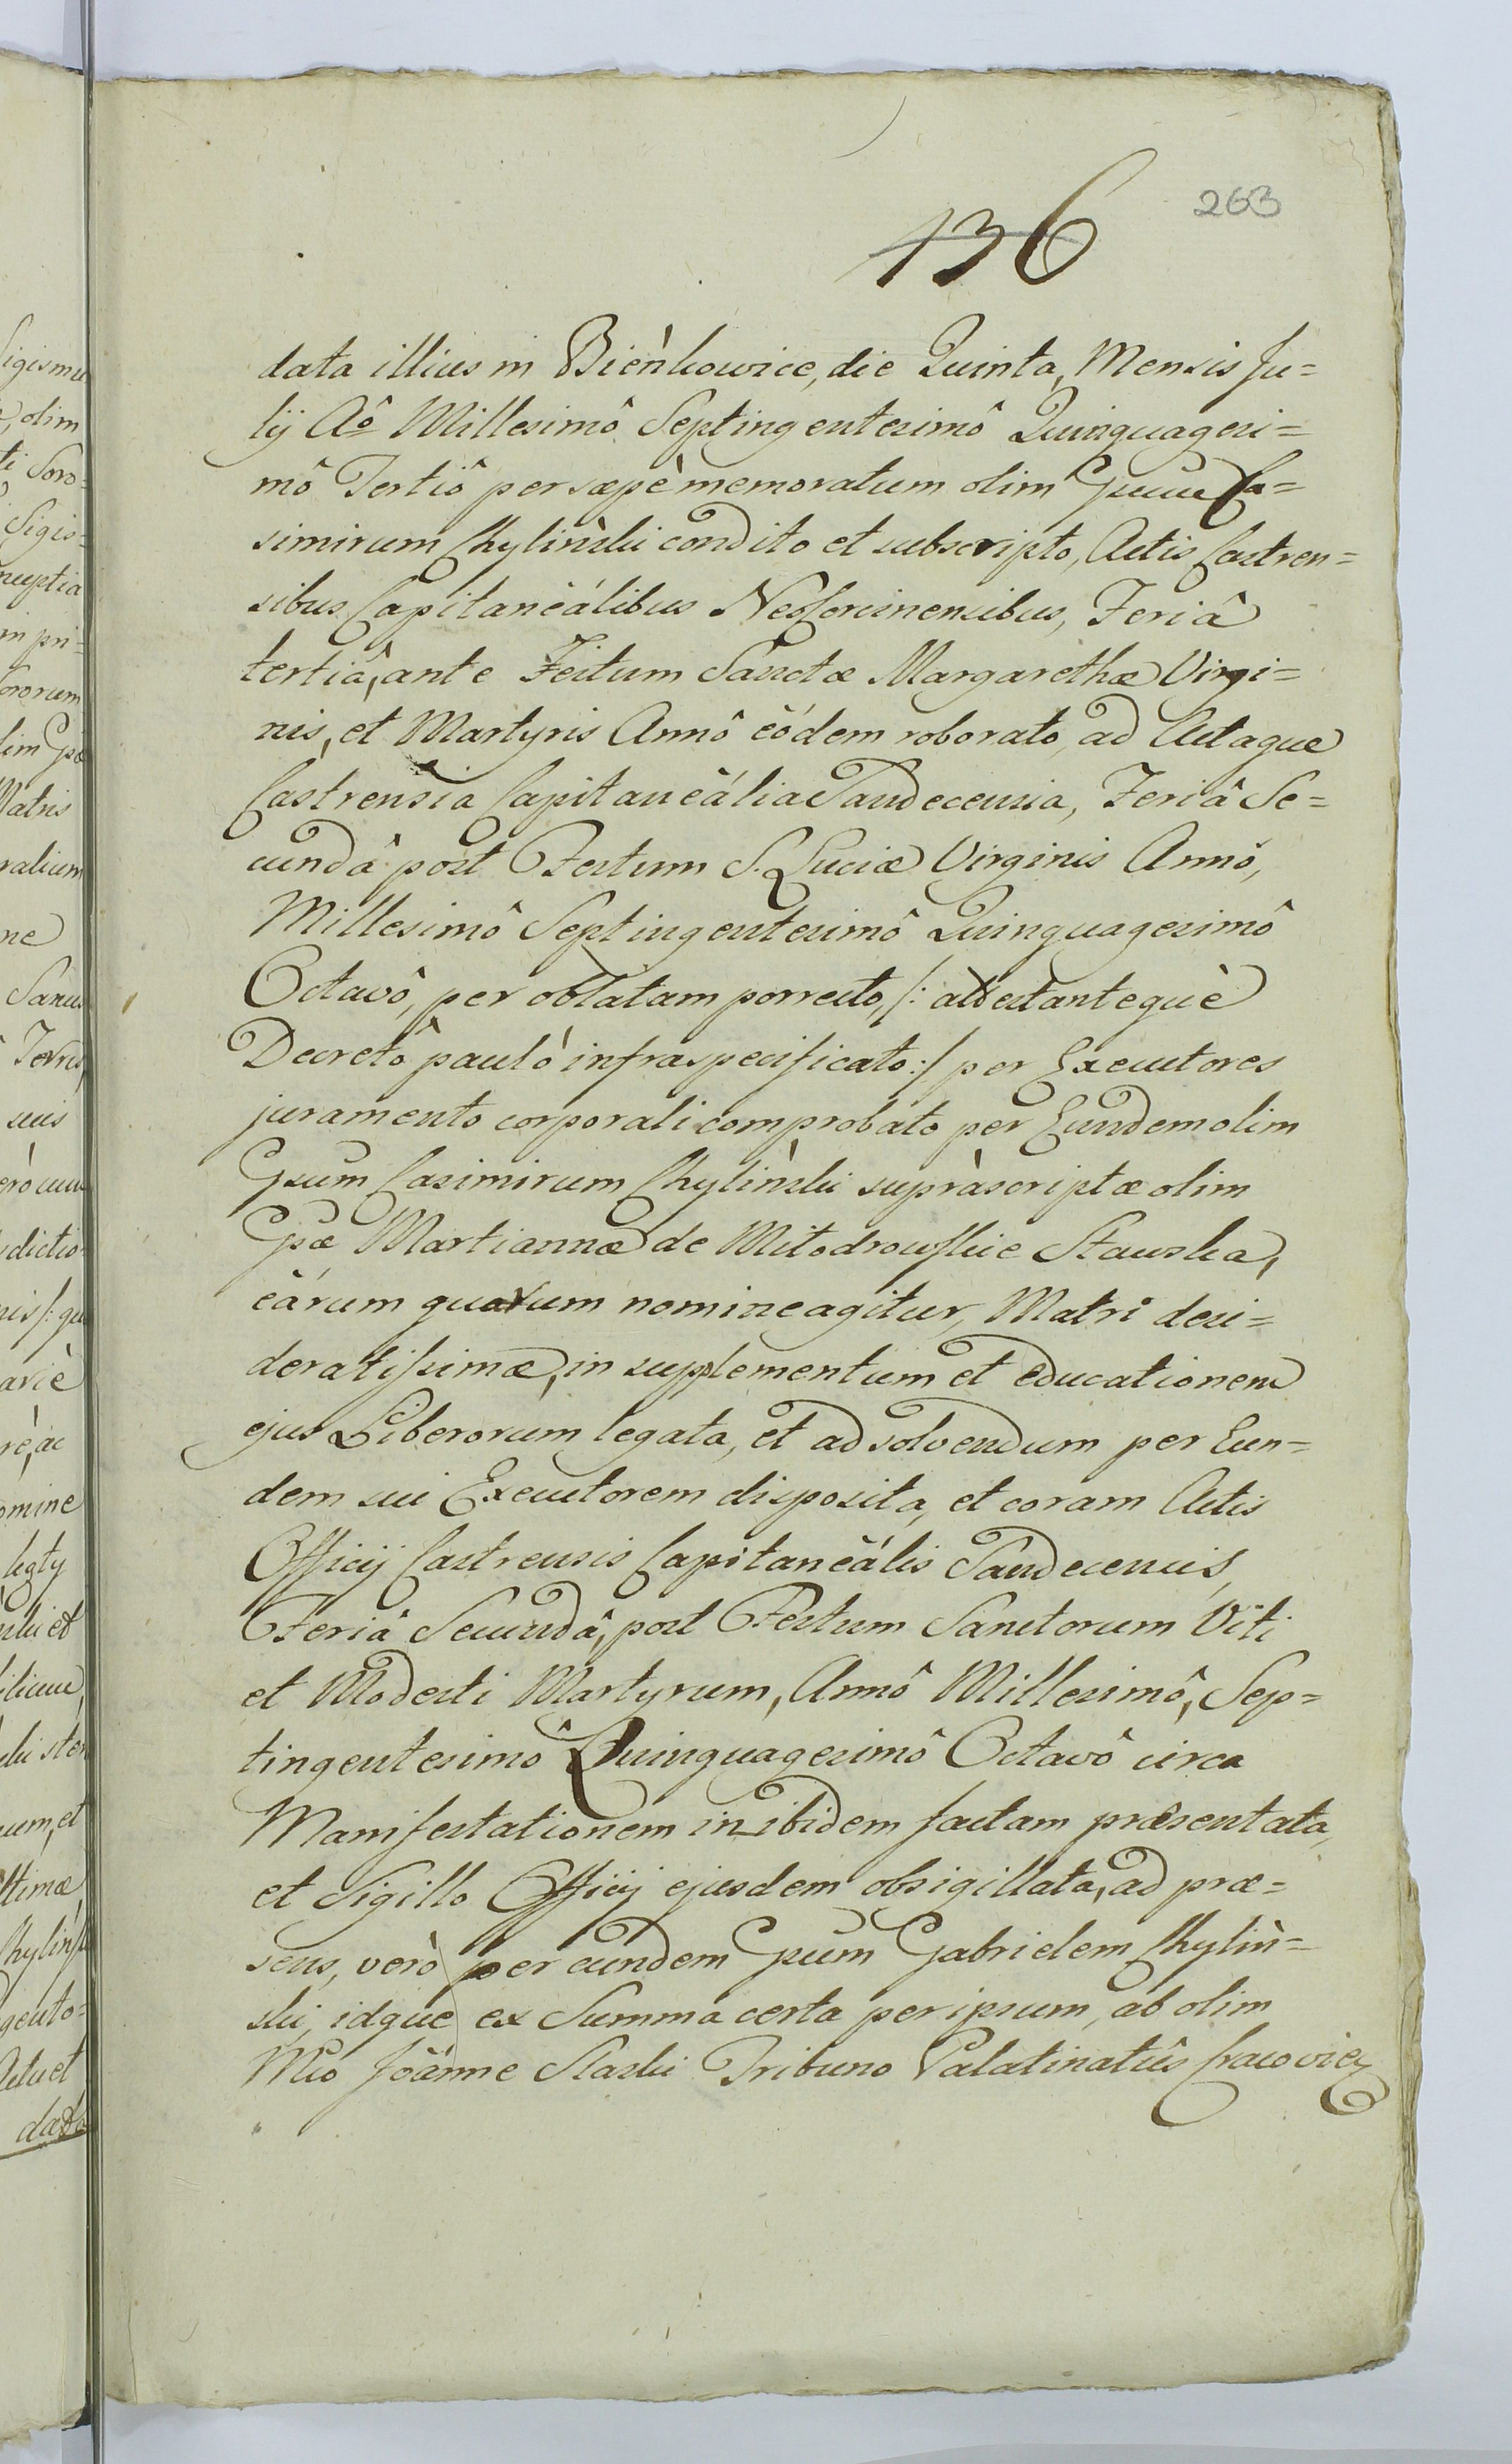 263
136
data illius in Bieǹkowice, die Quinta, Mensis Ju=
lij Aô Millesimô Septingentesimô Quinquagesi=
mô Tertiô per sæpè memoratum olim Gsum Ca=
simirum Chyliǹski condito et subscripto, Actis Castren=
sibus Capitaneálibus NeoCorcinensibus, Feriâ
tertiâ, ante Festum Sanctæ Margarethæ Virgi=
nis, et Martyris Annô eódem roborato, ad Actaque
Castrensia Capitaneália Sandecensia, Feriâ Se=
cundâ post Festum S. Luciæ Virginis Annô,
Millesimô Septingentesimô Quinquagesimô
Octavô, per oblatam porrecto, /: attestanteque
Decretô paulò infraspecificato :/ per Executores
juramento corporali comprobato per Eundem olim
Gsum Casimirum Chyliǹski supràscriptæ olim
Gsæ Martiannæ de Mitodrowskie Stawska,
eárum quarum nomine agitur, Matri desi=
deratissimæ, in supplementum et educationem
ejus Liberorum legata, et ad solvendum per Eun=
dem sui Executorem disposita, et coram Actis
Officij Castrensis Capitaneális Sandecensis,
Feriâ Secundâ, post Festum Sanctorum Viti
et Modesti Martyrum, Annô Millesimô, Sep=
tingentesimô Quinquagesimô Octavô circa
Manifestationem inibidem factam præsentata,
et Sigillo Officij ejusdem obsigillata, ad præ=
sens, verò per eundem Gsum Gabrielem Chyliǹ=
ski, idque ex Summa certa per ipsum, ab olim
Mco Joánne Slaski Tribuno Palatinatûs Cracovien